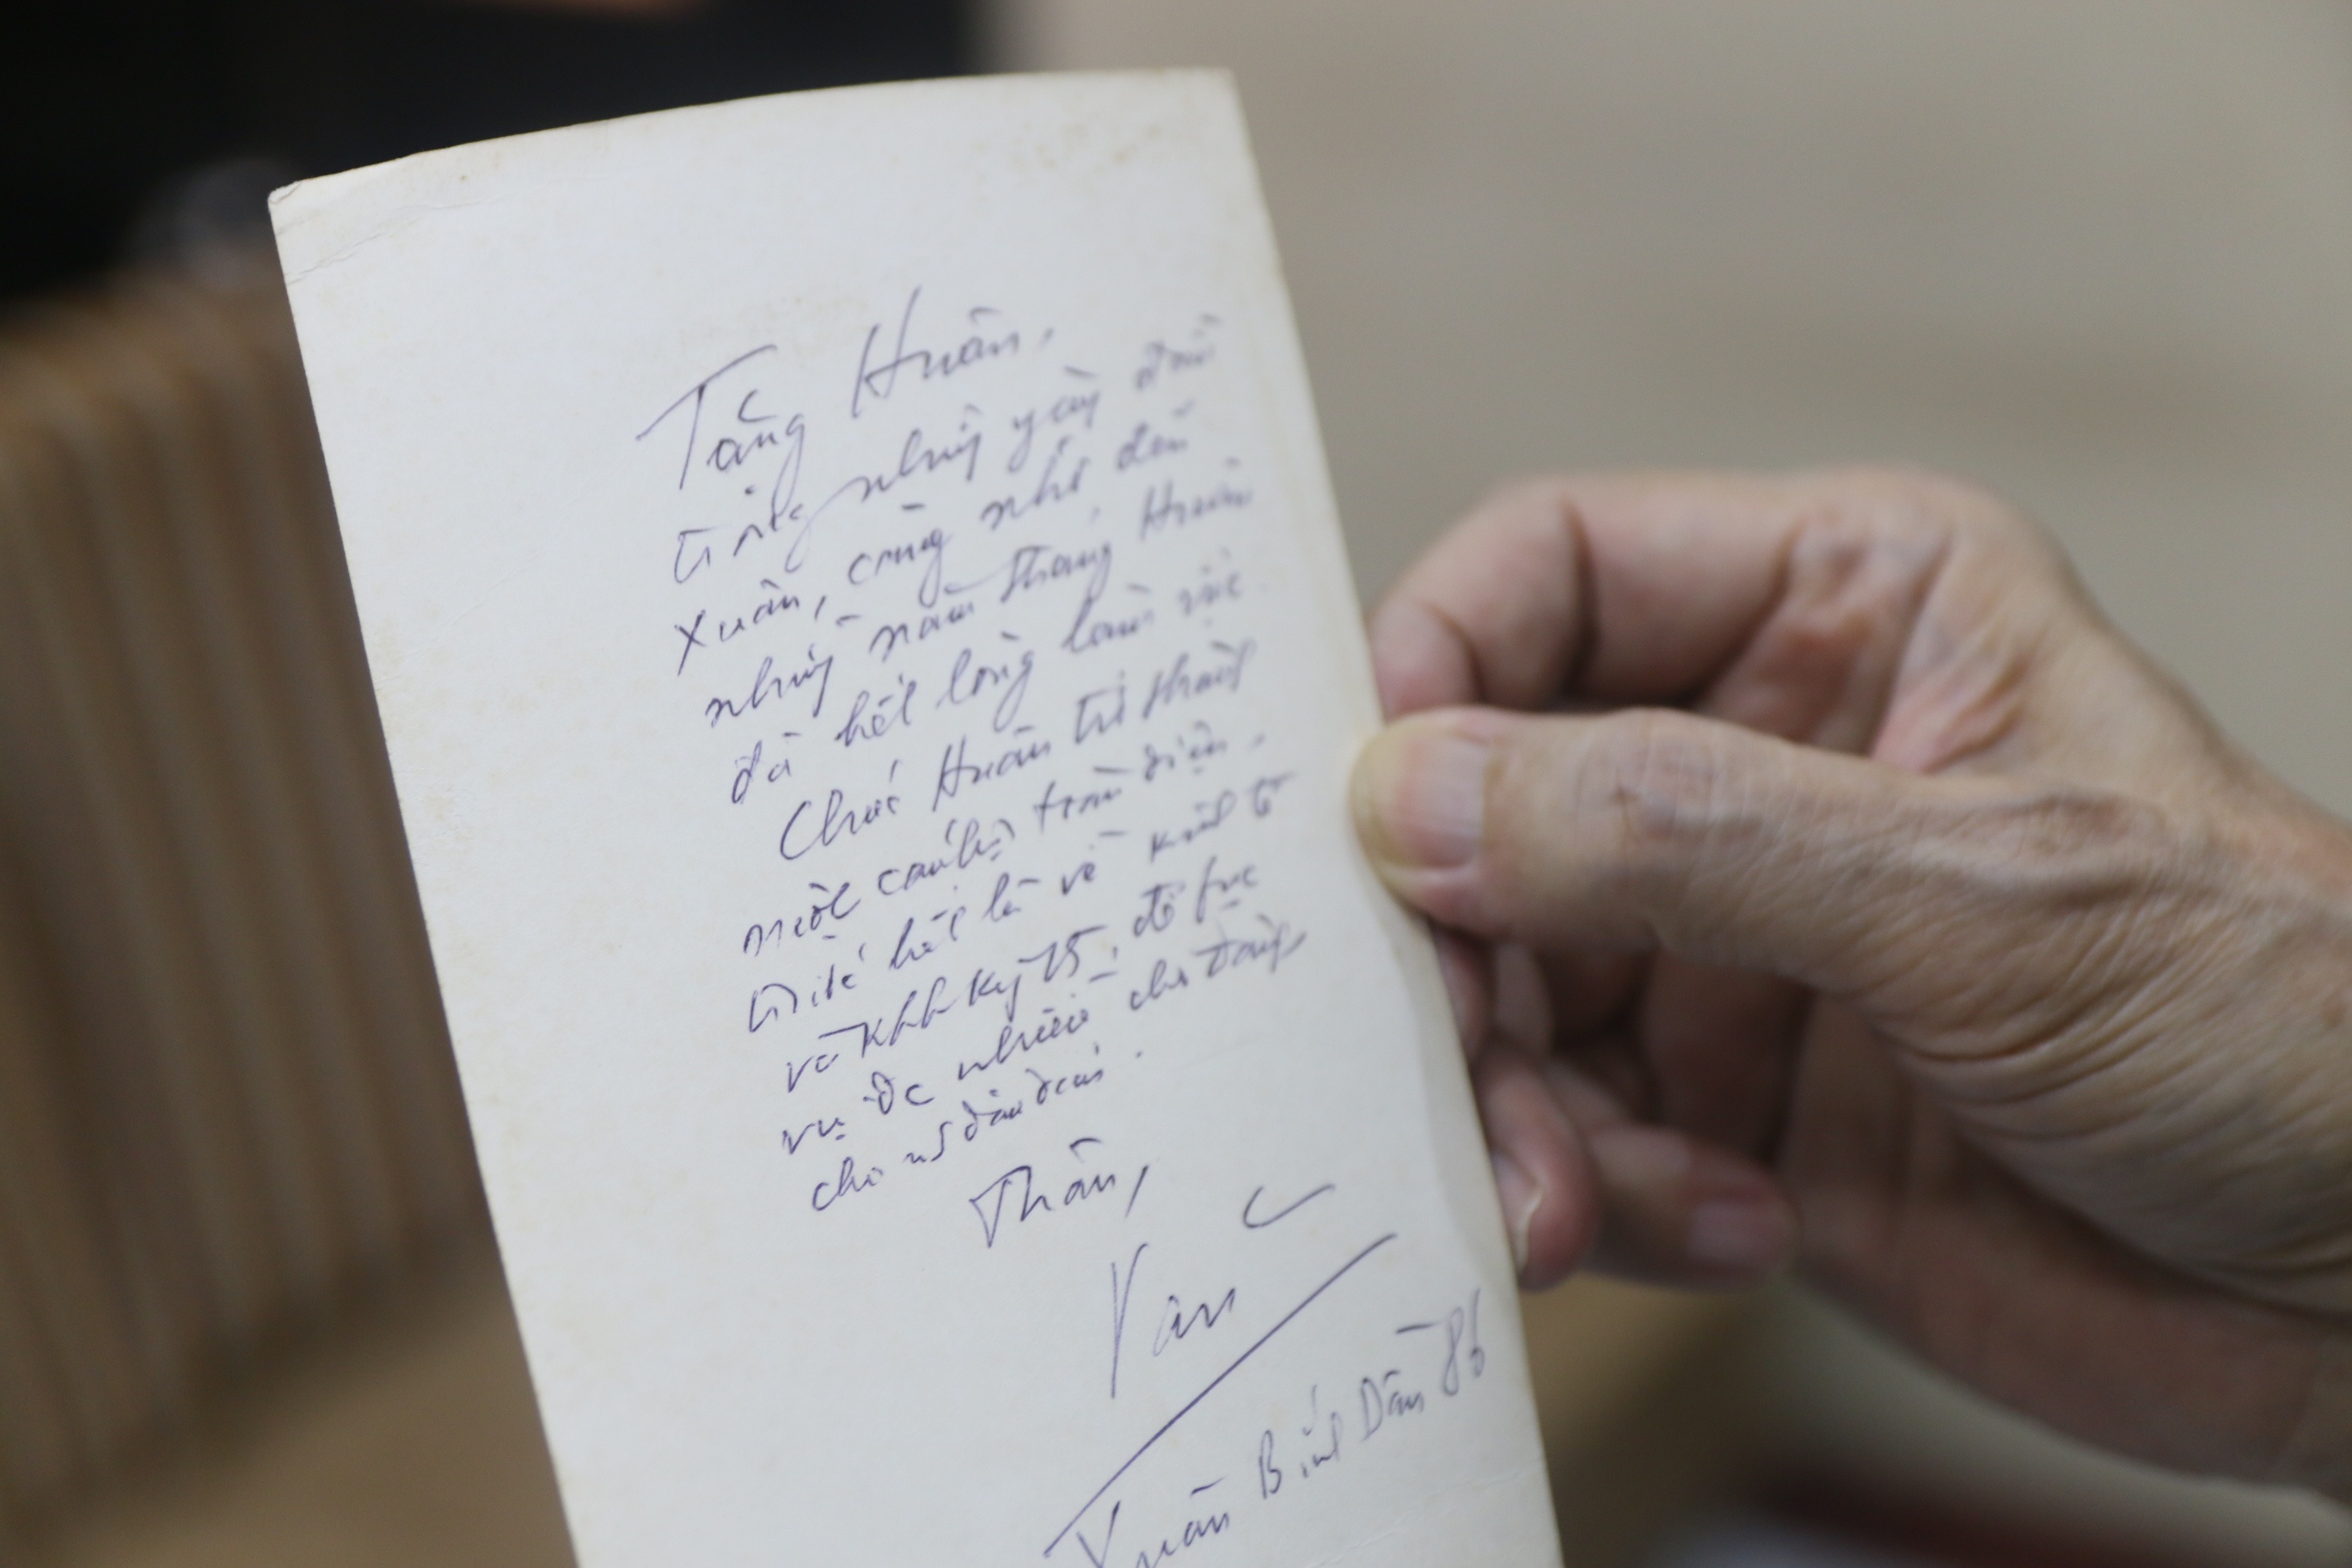 Tặng Huân,
trong những ngày đầu
Xuân, càng nhớ đến
những năm tháng Huân
đã hết lòng làm việc.
Chúc Huân trở thành
một cán bộ toàn diện,
trước hết là về kinh tế
và KHKT, để fục
vụ đc nhiều cho Đảng,
cho ND
Thân,
Văn
Xuân Bính Dần 86